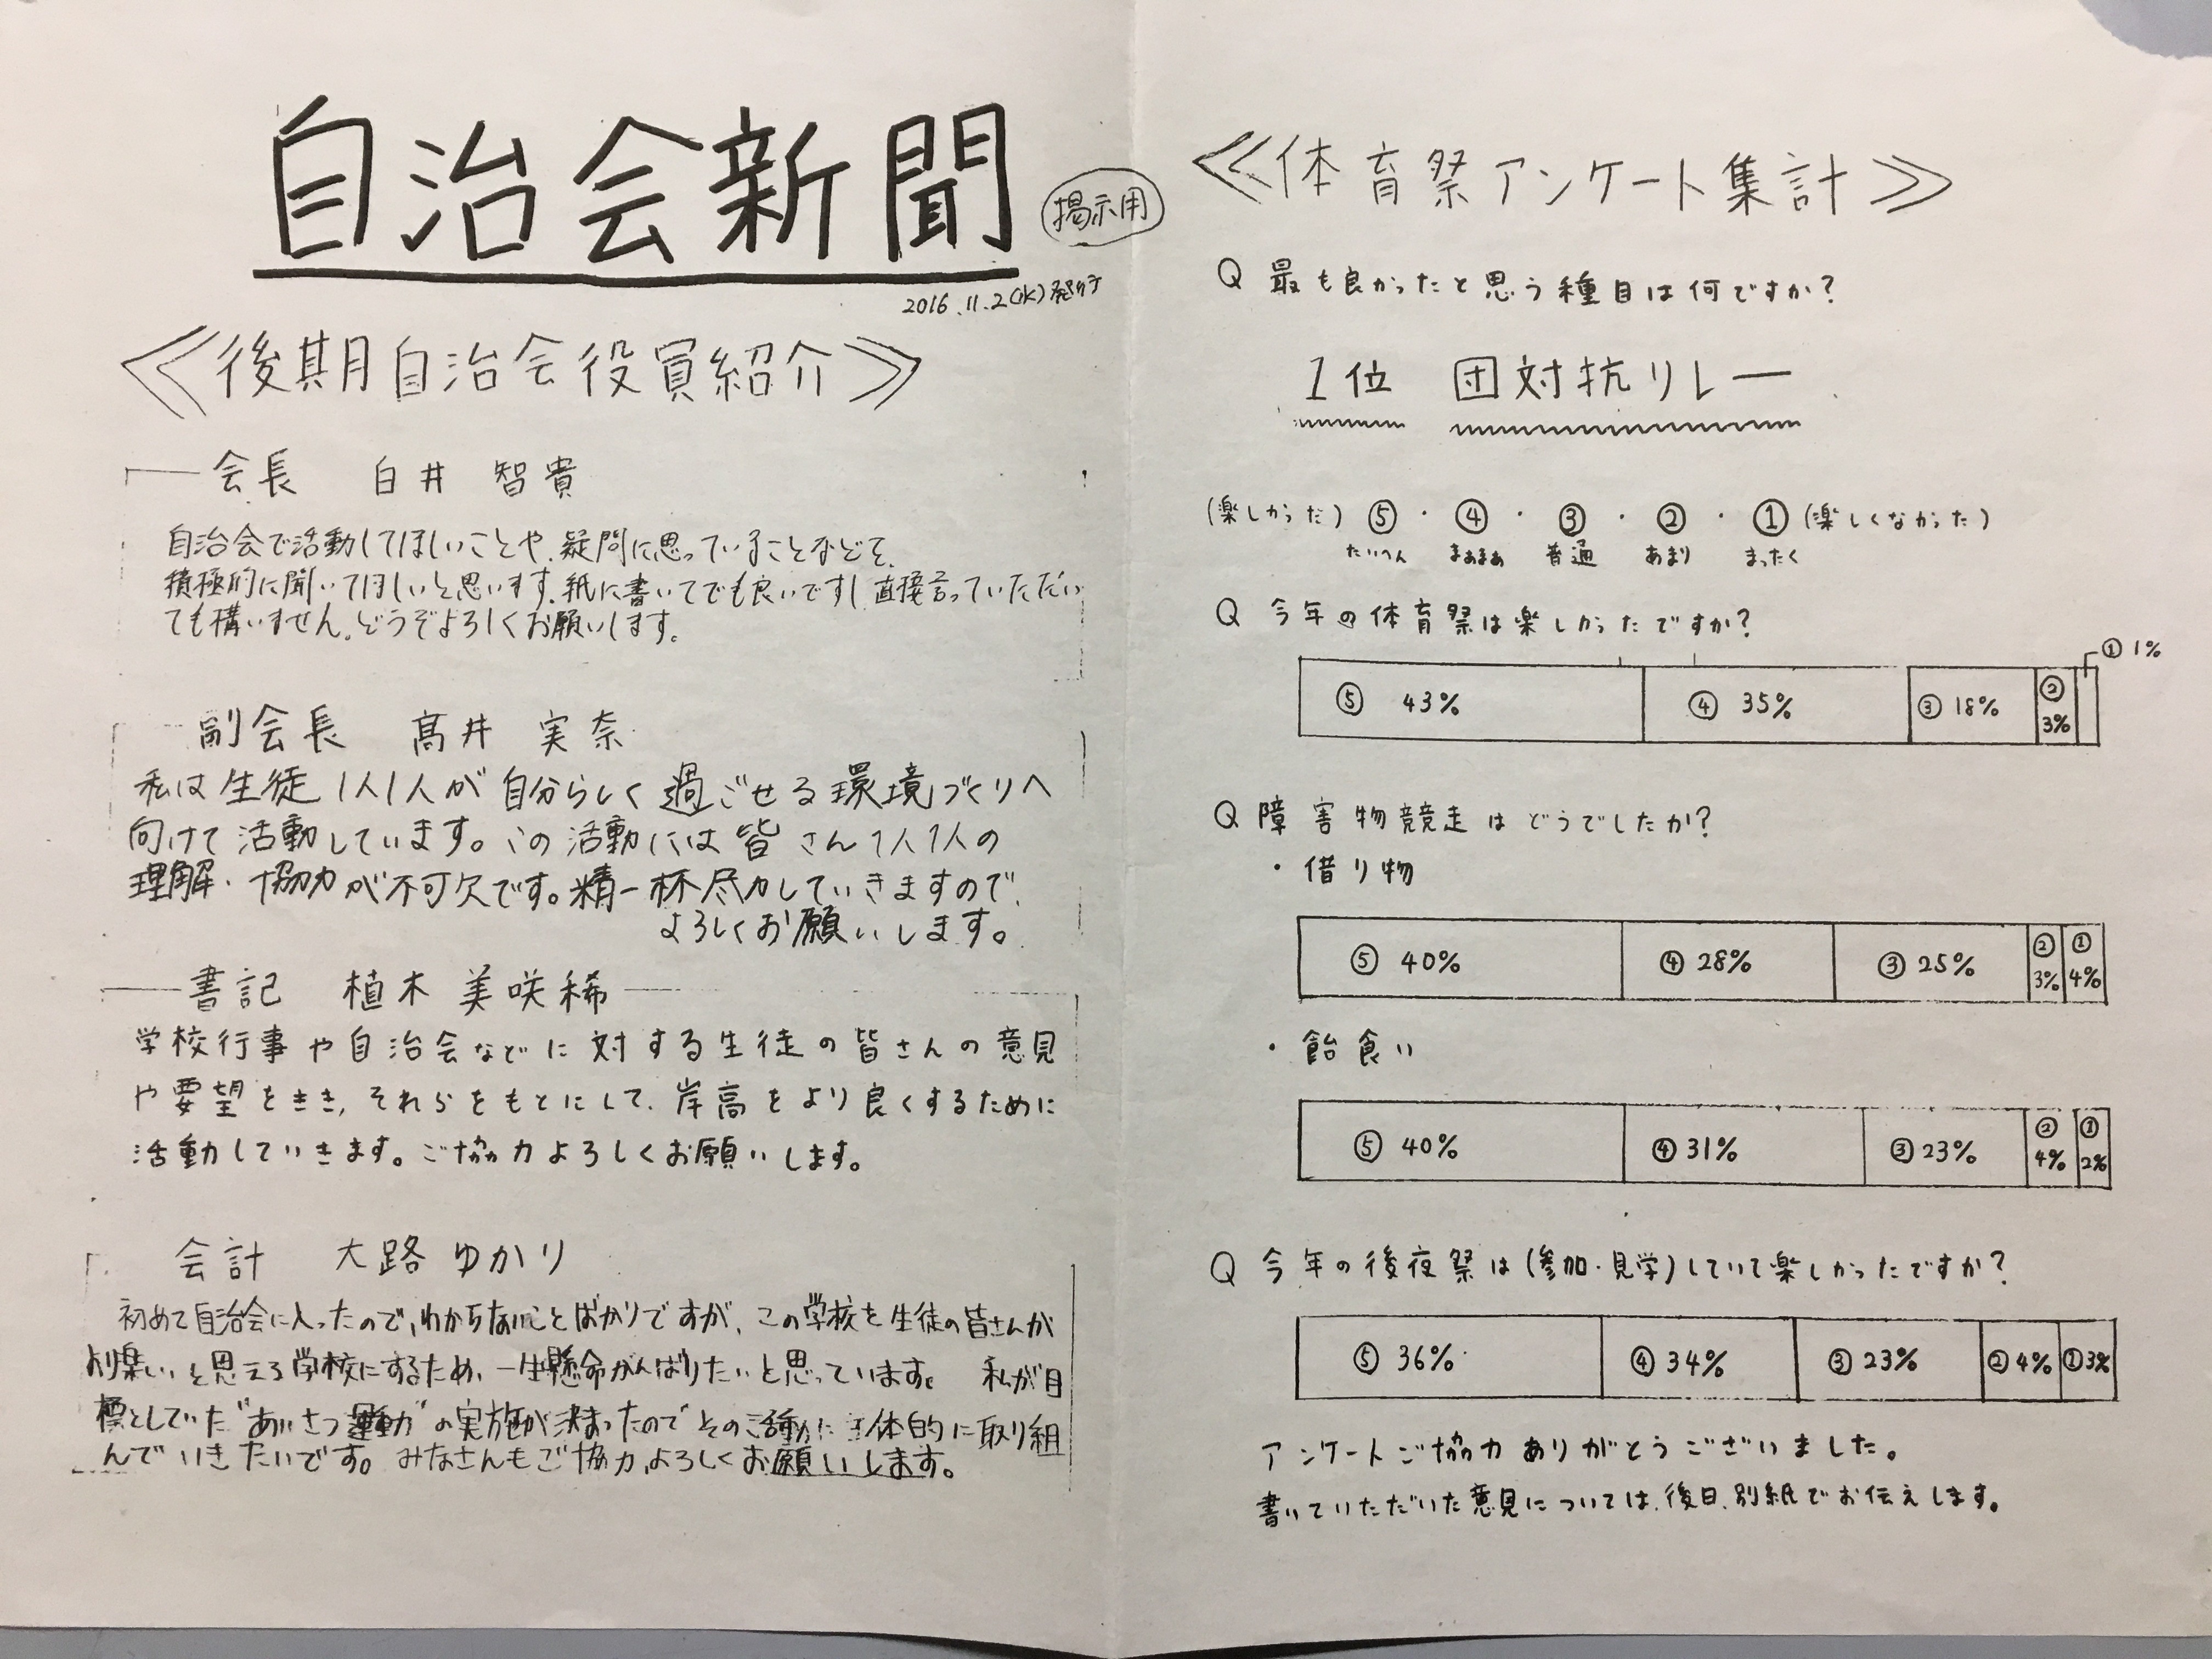 自治会新聞
掲示用
2016.11.2(水)発行
≪後期自治会役員紹介≫
会長 白井 智貴
自治会で活動してほしいことや、疑問に思っていることなどを、
積極的に聞いてほしいと思います。紙に書いてでも良いですし、直接言っていただい
ても構いません。どうぞよろしくお願いします。
副会長 髙井 実奈
私は生徒1人1人が自分らしく過ごせる環境づくりへ
向けて活動しています。この活動には皆さん1人1人の
理解・協力が不可欠です。精一杯尽力していきますので、
よろしくお願いします。
書記 植木 美咲稀
学校行事や自治会などに対する生徒の皆さんの意見
や要望をきき、それらをもとにして、岸高をより良くするために
活動していきます。ご協力よろしくお願いします。
会計 大路 ゆかり
初めて自治会に入ったので、わからないことばかりですが、この学校を生徒の皆さんが
より楽しいと思える学校にするため、一生懸命がんばりたいと思っています。 私が目
標としていた"あいさつ運動"の実施が決まったのでその活動に主体的に取り組
んでいきたいです。みなさんもご協力、よろしくお願いします。
≪体育祭アンケート集計≫
Q 最も良かったと思う種目は何ですか?
1位 団対抗リレー
(楽しかった) ⑤ ・ ④ ・ ③ ・ ② ・ ① (楽しくなかった)
たいへん まぁまぁ 普通 あまり まったく
Q 今年の体育祭は楽しかったですか?
① 1%
⑤ 43% ④ 35% ③ 18% ② 3%
Q 障害物競走はどうでしたか?
・借り物
⑤ 40% ④ 28% ③ 25% ② 3% ① 4%
・飴食い
⑤ 40% ④ 31% ③ 23% ② 4% ① 2%
Q 今年の後夜祭は(参加・見学)していて楽しかったですか?
⑤ 36% ④ 34% ③ 23% ② 4% ① 3%
アンケートご協力ありがとうございました。
書いていただいた意見については、後日、別紙でお伝えします。